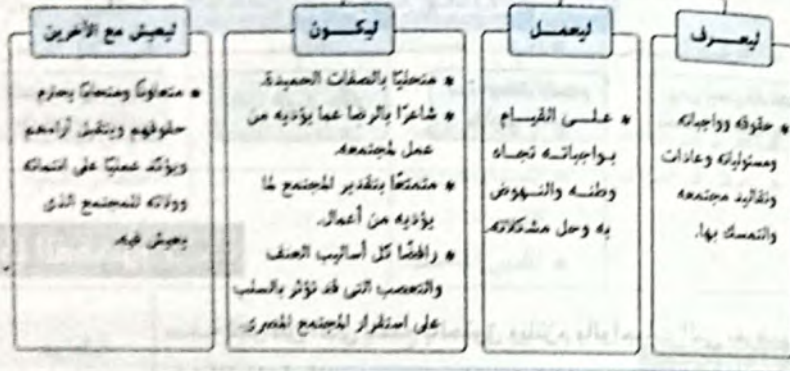 ليعـــرف
حقوقه وواجباته
ومسئولياته وعادات
وتقاليد مجتمعه
والتمسك بها.
ليعمــل
علــى القيــام
بـواجباتــه تجــاه
وطنــه والنــهوض
به وحل مشكلاته.
ليكــون
متحليًا بالصفات الحميدة.
شاعرًا بالرضا عما يؤديه من
عمل لمجتمعه.
متمتعًا بتقدير المجتمع لما
يؤديه من أعمال.
رافضًا كل أساليب العنف
والتعصب التى قد تؤثر بالسلب
على استقرار المجتمع المصرى.
ليعيش مع الآخرين
متعاونًا ومتحابًا يحترم
حقوقهم ويتقبل آراءهم
ويؤكد عمليًا على انتمائه
وولائه للمجتمع الذى
يعيش فيه.